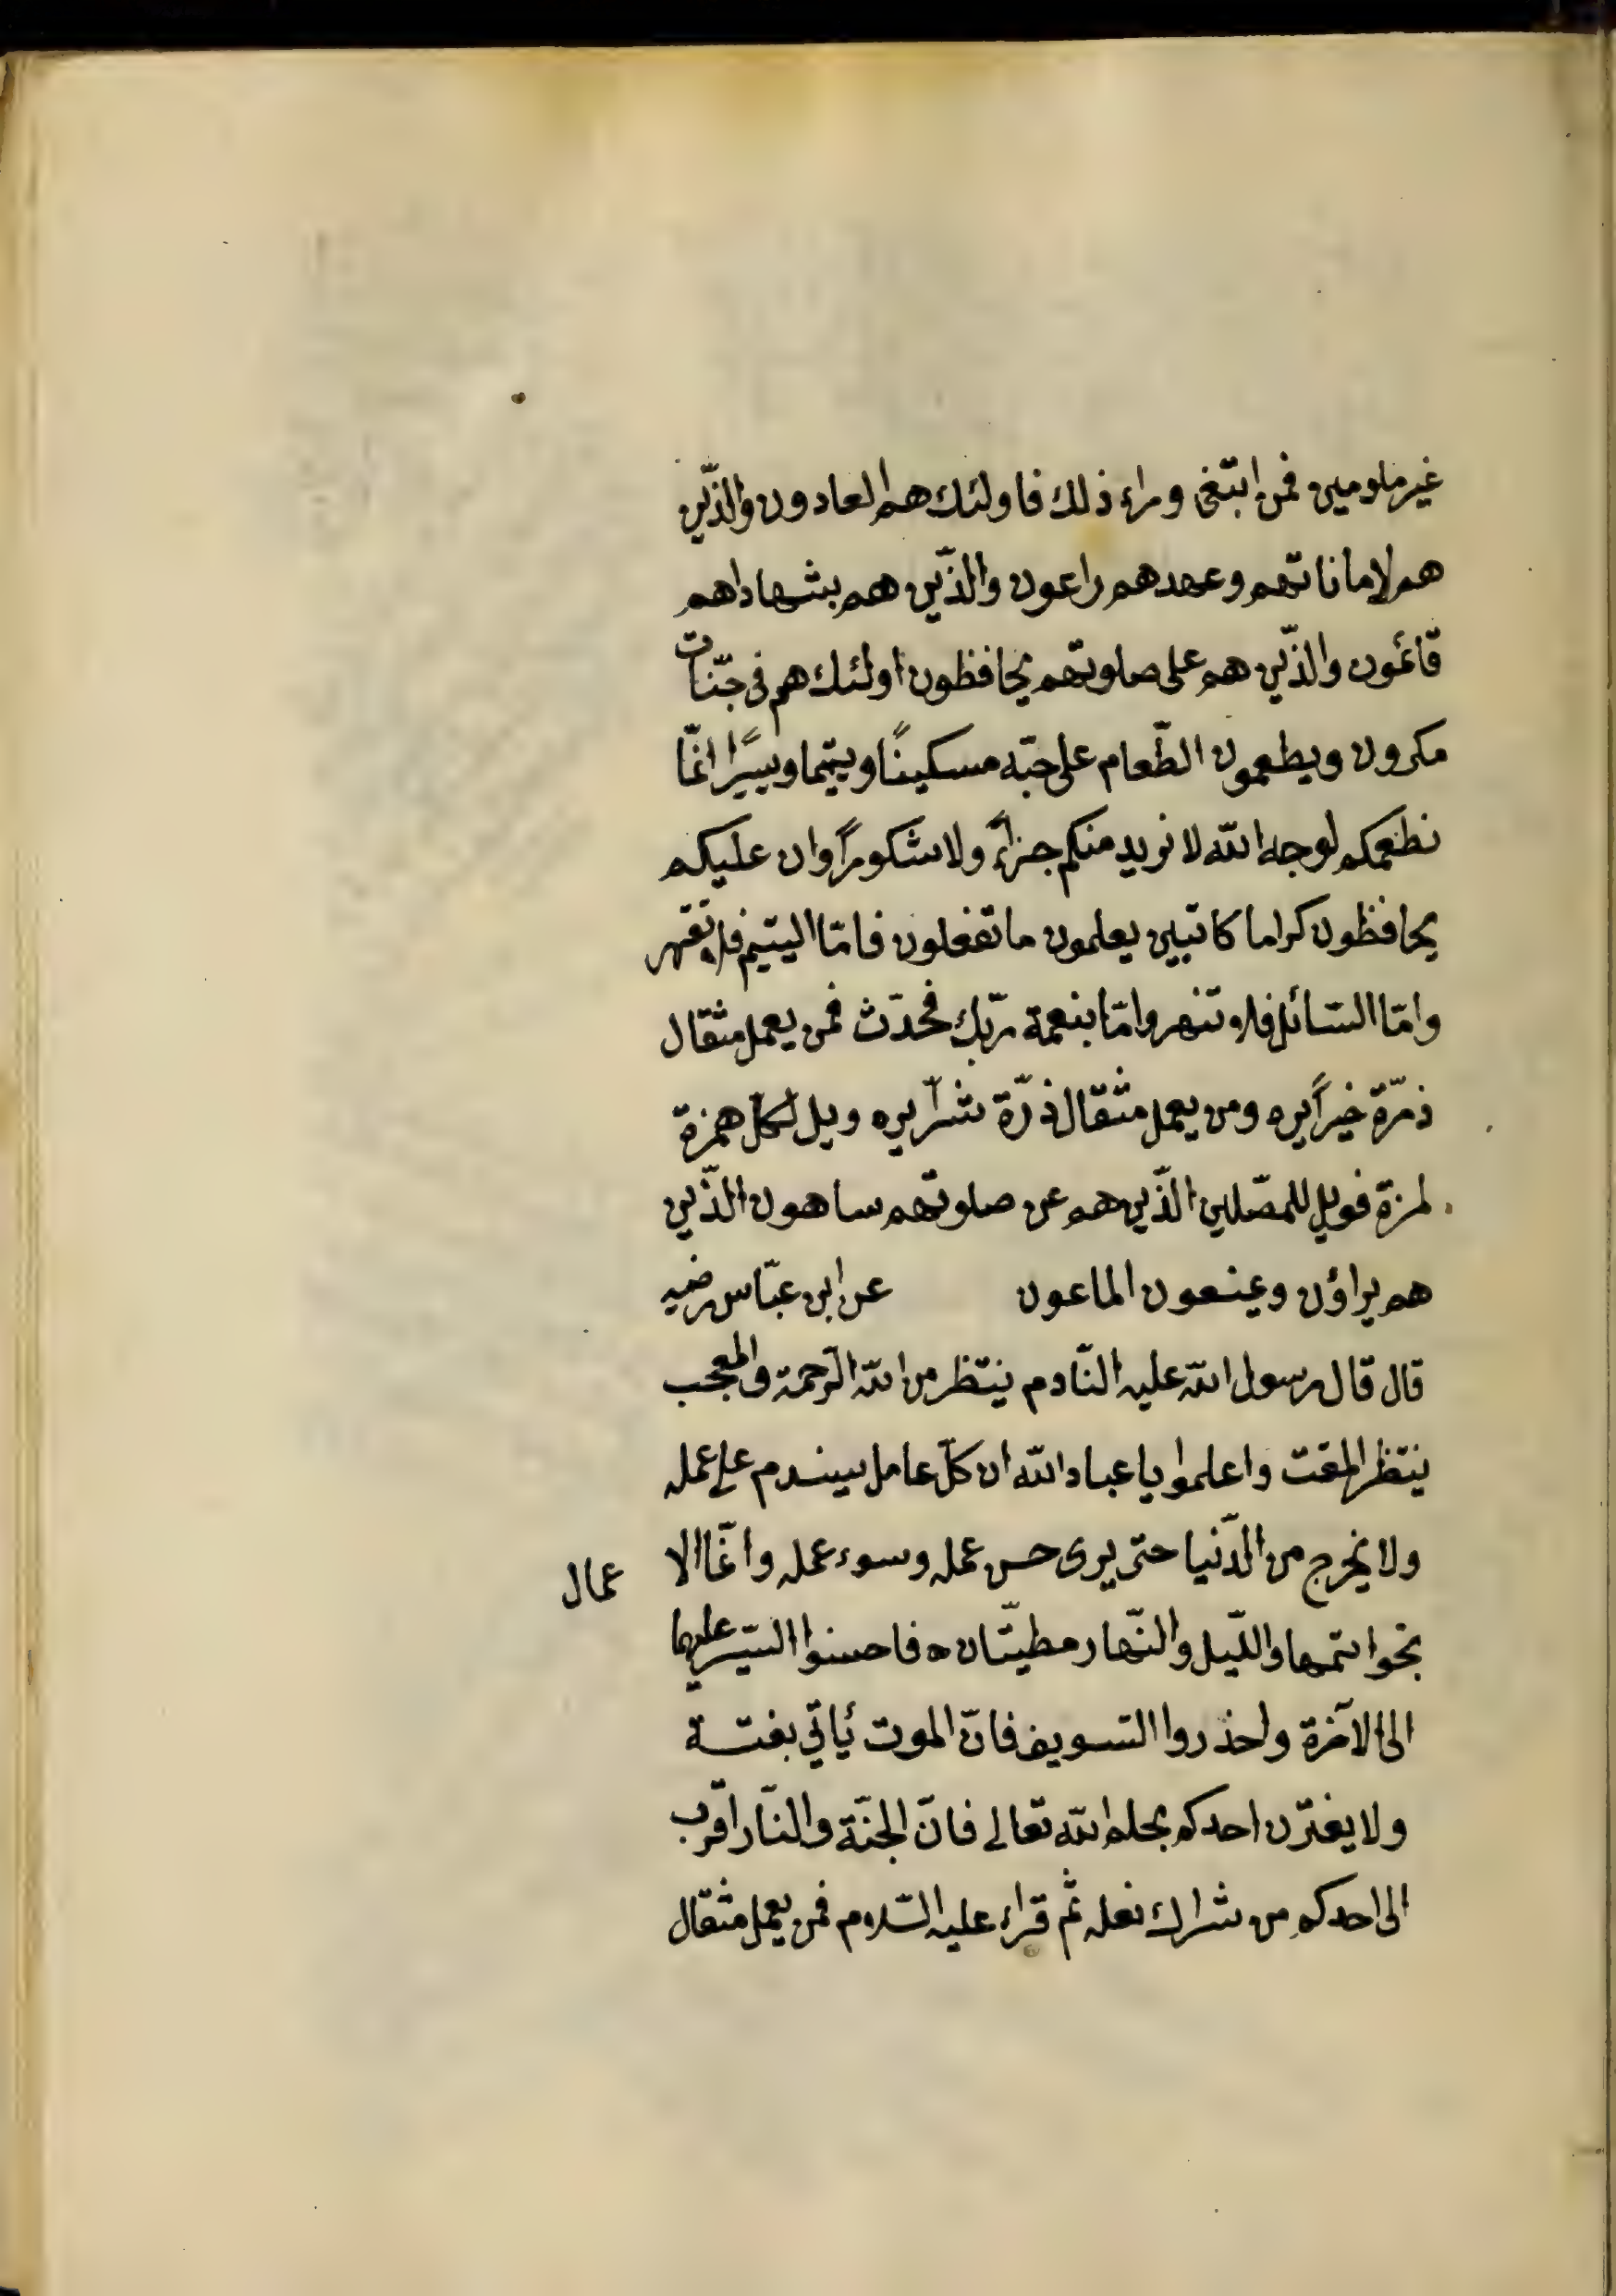 غير ملومين فمن ابتغى وراء ذلك فاولئك هم العادون والذّين
هم لاماناتهم وعهدهم راعون والذّين هم بشهاداهم
قائمون والذّين هم على صلوتهم يحافظون اولئك هم فى جنّات
مكرون ويطعمون الطّعام على حبّه مسكينًا ويتيما ويسيرًا انمّا
نطعمكم لوجه الله لا نريد منكم جزاءً ولا شكورًا وان عليكم
يحافظون كراما كاتبين يعلمون ما تفعلون فامّا اليتيم فلا تقهر
وامّا السّائل فلا تنهر وامّا بنعمة ربّك فحدّث فمن يعمل مثقال
ذرّة خيراً يره ومن يعمل مثقال ذرّة شرّاً يره ويل لكلّ همزة
لمزة فويل للمصّلين الذّين هم عن صلوتهم ساهون الذّين
هم يراؤن ويمنعون الماعون عن ابن عبّاس رضيه
قال قال رسول الله عليه النّادم ينتظر من الله الرّحمة والمعجب
ينتظر المقت واعلموا يا عباد الله ان كلّ عامل سيندم على عمله
ولا يخرج من الدّنيا حتى يرى حسن عمله وسوء عمله وانمّا الا عمال
بخواتمها واللّيل والنّهار مطيّتان فاحسنوا السّير عليهما
الى الآخرة واحذروا التسويف فانّ الموت يأتي بغتة
ولا يغترّن احدكم بحلم الله تعالى فانّ الجنّة والنّار اقرب
الى احدكم من شراك نعله ثمّ قراء عليه السّلام فمن يعمل مثقال